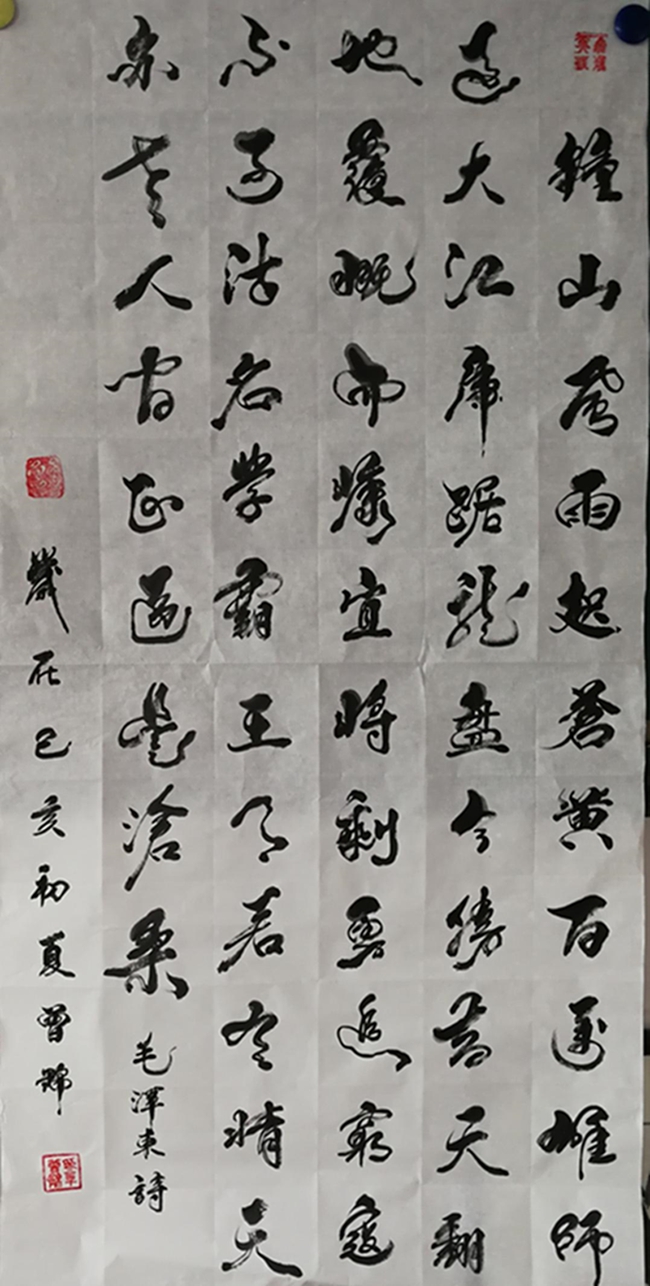 鐘山風雨起蒼黄百萬雄師
過大江虎踞龍盤今勝昔天翻
地覆慨而慷宜將剩勇追窮寇
不可沽名學霸王天若有情天
亦老人間正道是滄桑
毛澤東詩
歲在己亥初夏曾